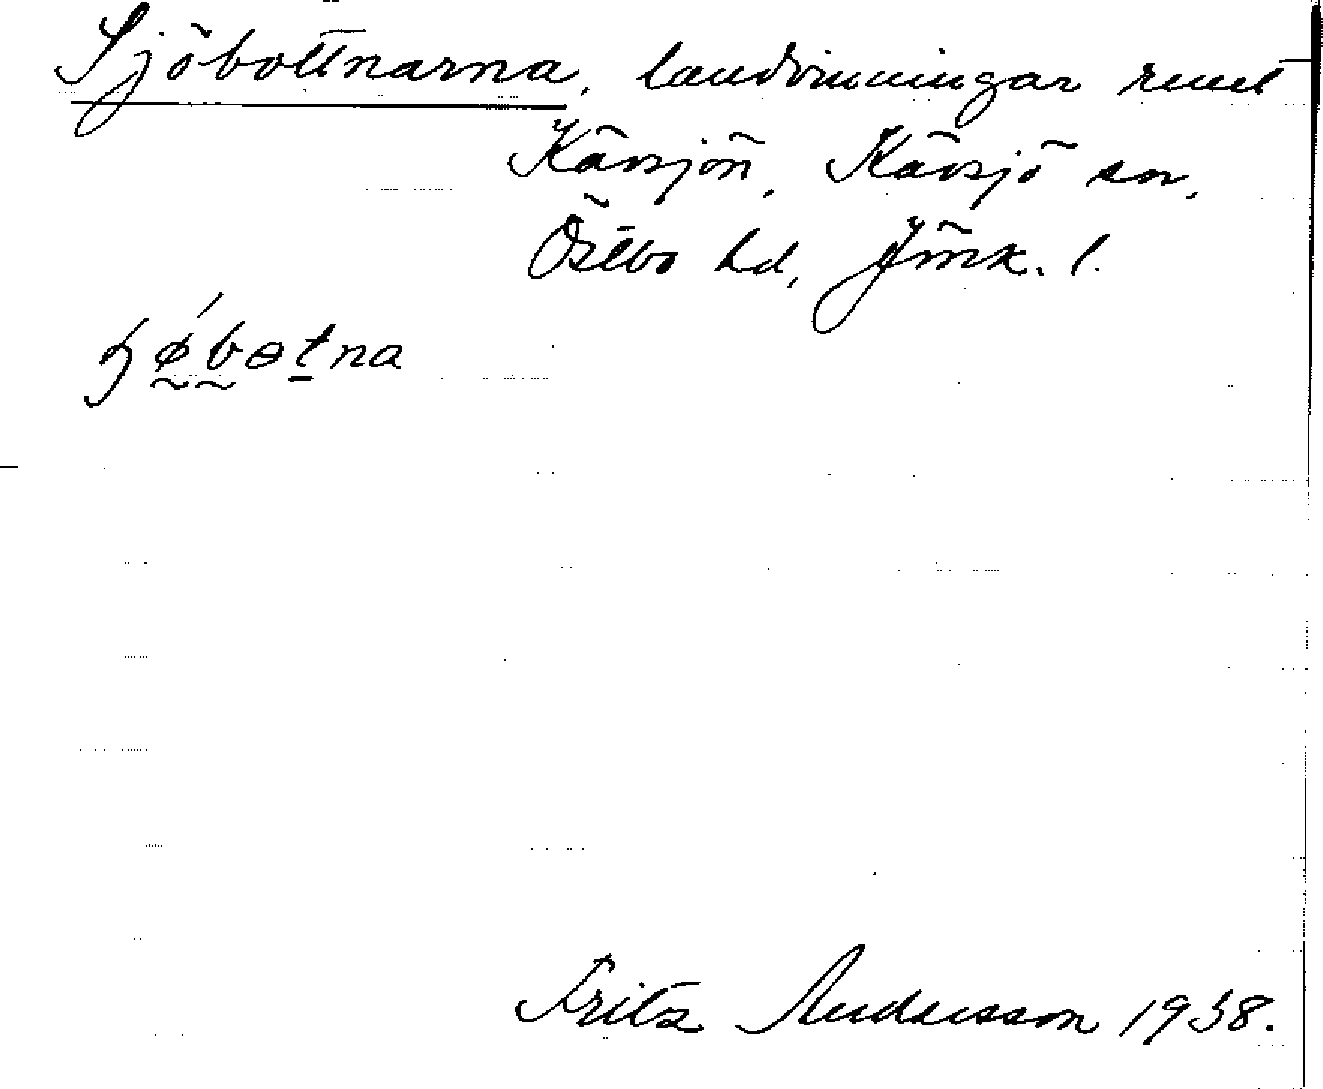 Sjöbottnarna, landvinningar runt
Kävsjön, Kävsjö sn,
Östbo hd, Jönk. l.
ɧø´bɵtna
Fritz Andersson 1938.